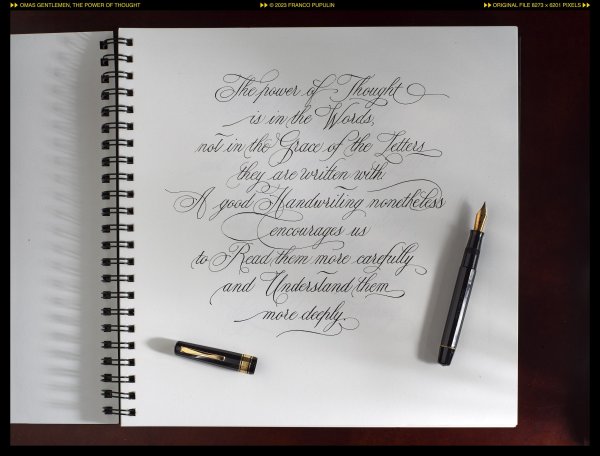 OMAS GENTLEMEN, THE POWER OF THOUGHT
© 2023 FRANCO PUPULIN
ORIGINAL FILE 8273 x 6201 PIXELS
The power of Thought
is in the Words,
not in the Grace of the Letters
they are written with.
A good Handwriting nonetheless
encourages us
to Read them more carefully
and Understand them
more deeply.